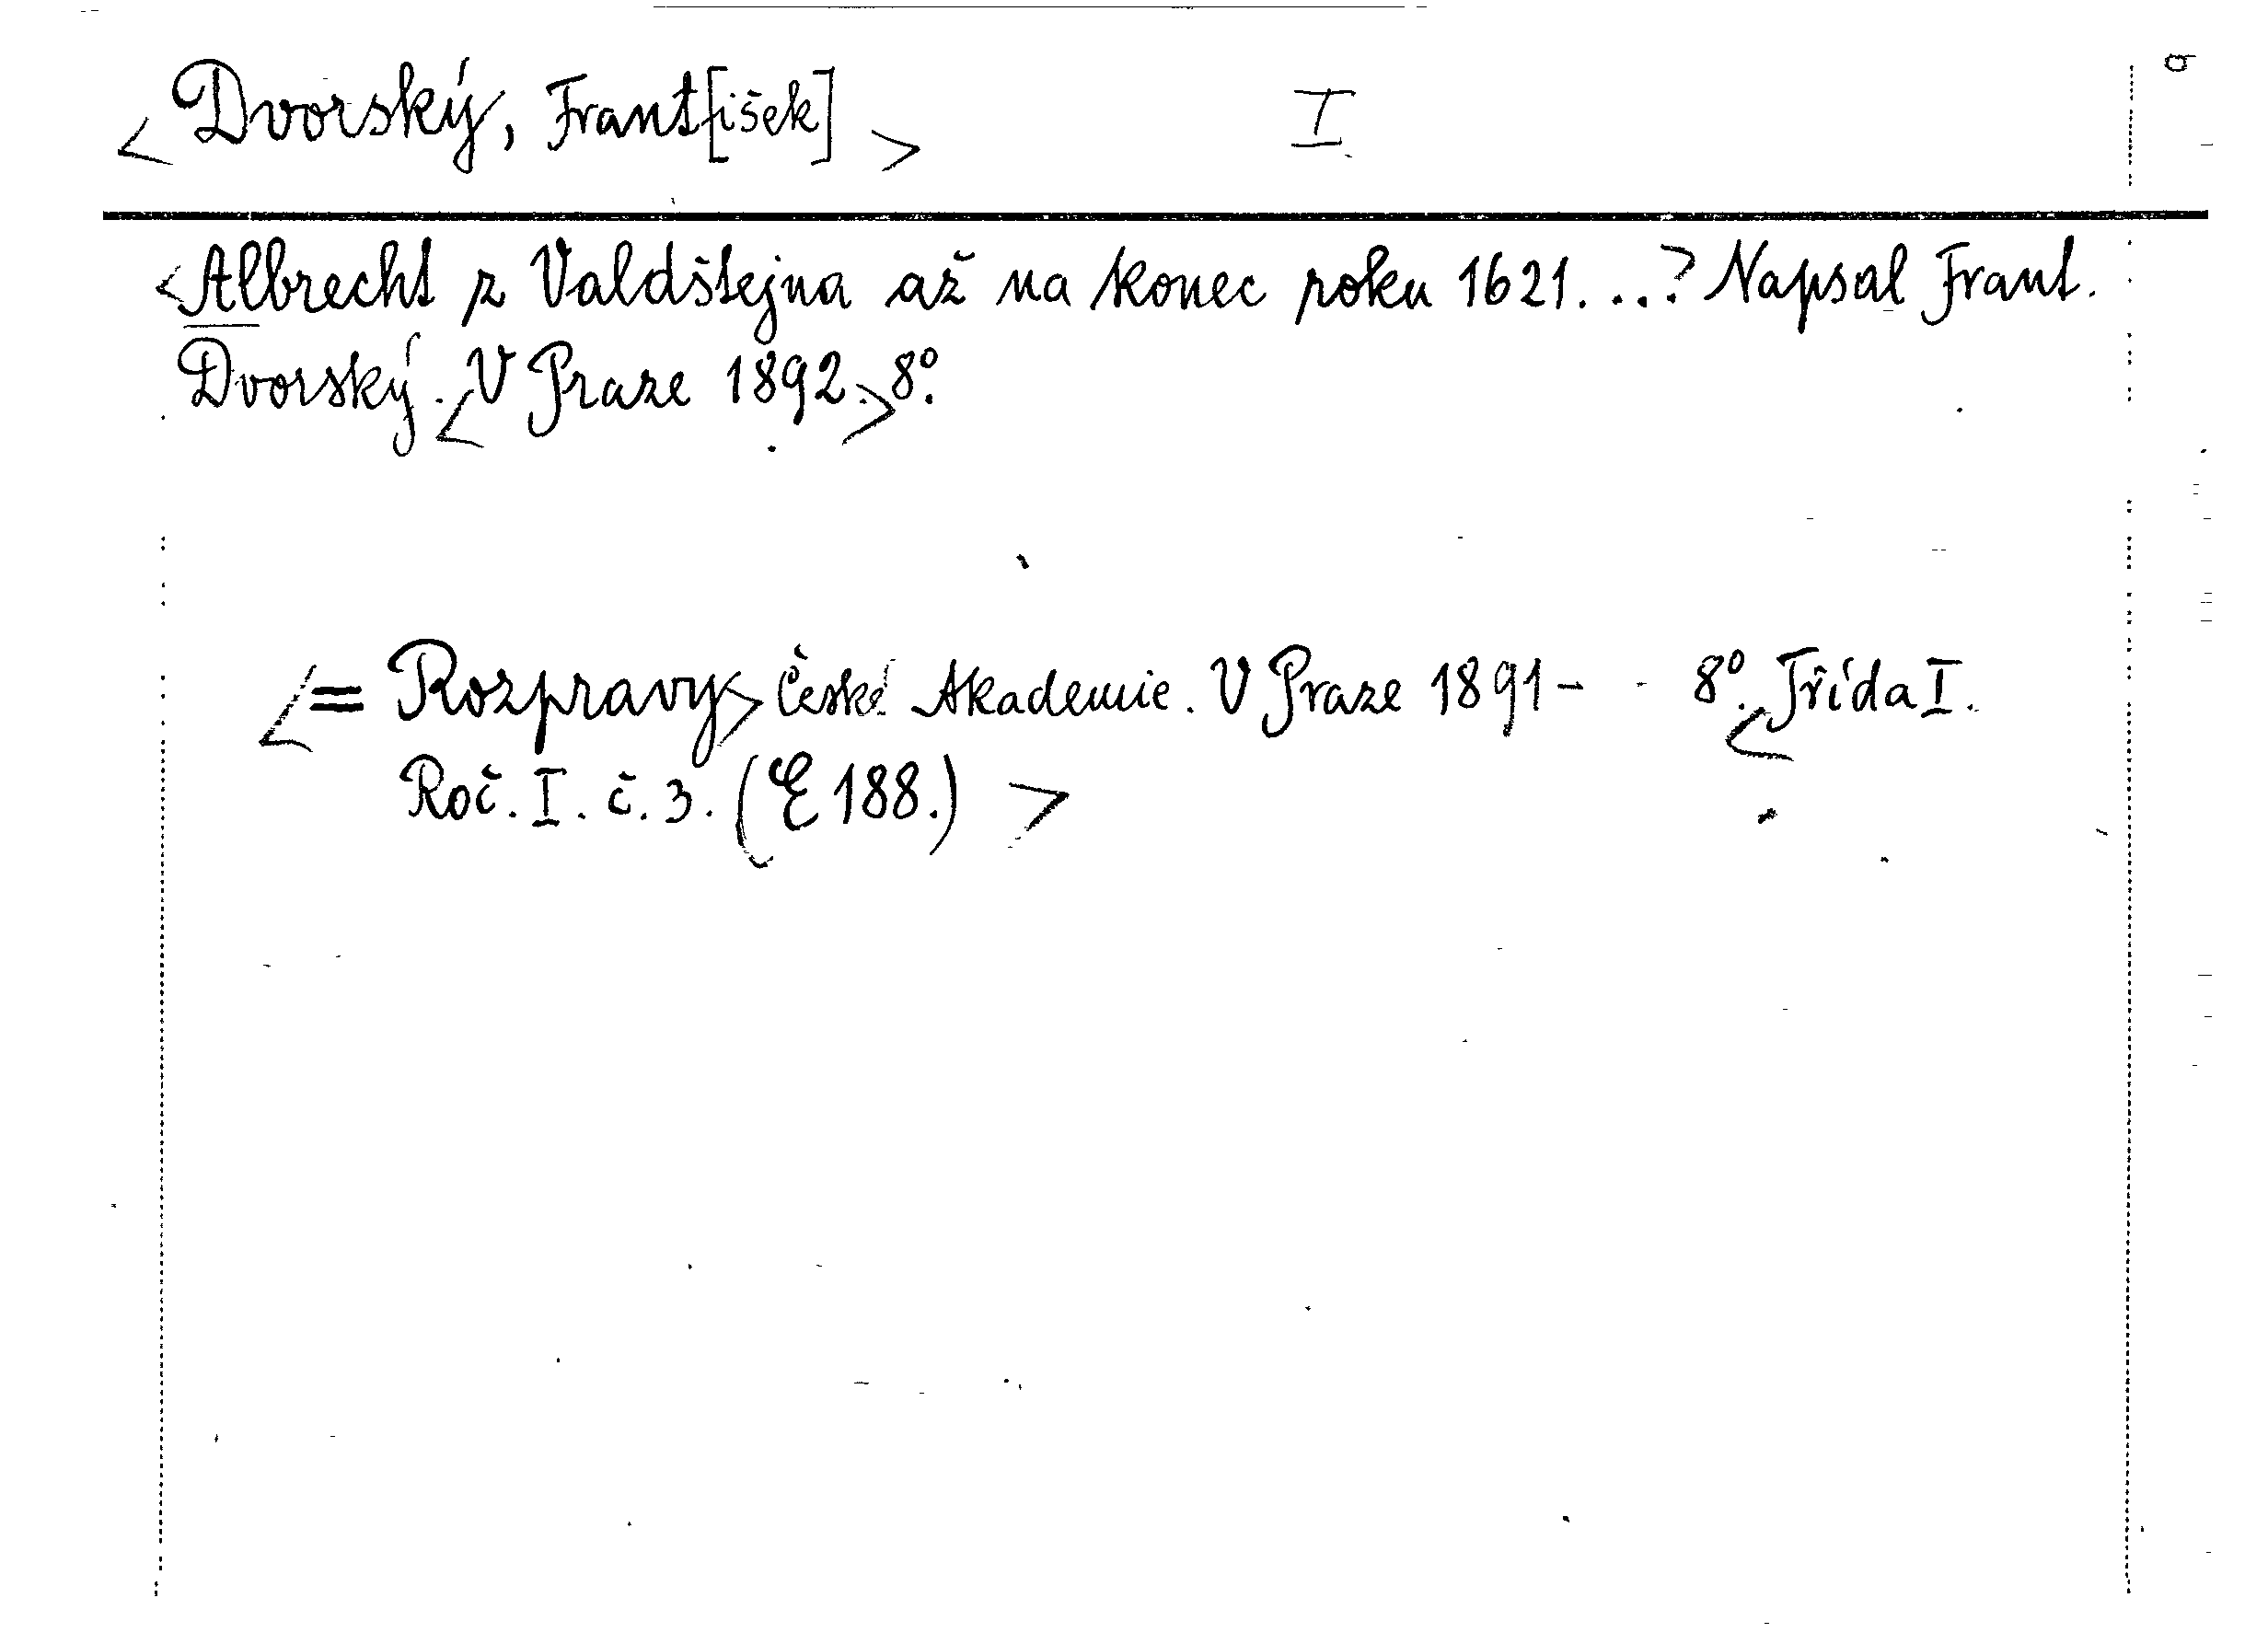 <Dvorský, Frant[išek]> I
<Albrecht z Valdštejna až na konec roku 1621. ...> Napsal Frant.
Dvorský. <V Praze 1892.> 8º.
<= Rozpravy> České Akademie. V Praze 1891- - 8º. <Třída I.
Roč. I. č. 3. (E 188.) >